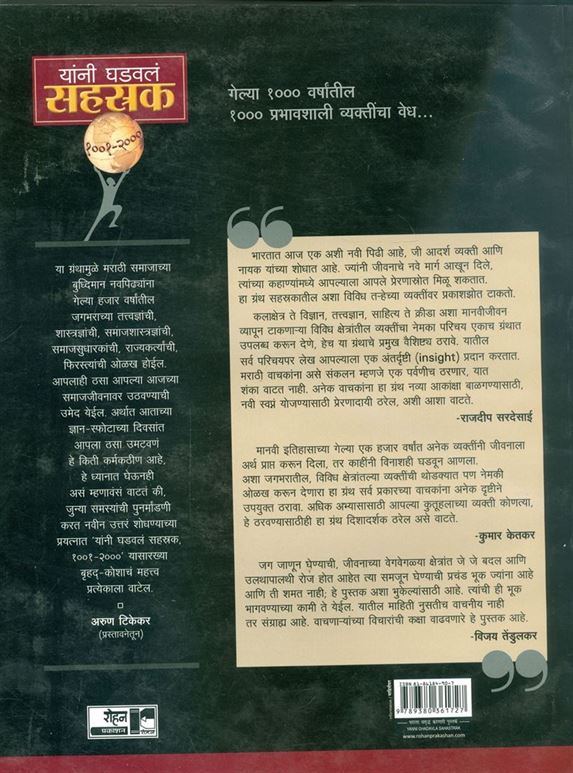 यांनी घडवलं
सहस्रक
१००१-२०००
गेल्या १००० वर्षांतील
१००० प्रभावशाली व्यक्तींचा वेध...
या ग्रंथामुळे मराठी समाजाच्या
बुध्दिमान नवपिढ्यांना
गेल्या हजार वर्षांतील
जगभराच्या तत्त्वज्ञांची,
शास्त्रज्ञांची, समाजशास्त्रज्ञांची,
समाजसुधारकांची, राज्यकर्त्यांची,
फिरस्त्यांची ओळख होईल.
आपलाही ठसा आपल्या आजच्या
समाजजीवनावर उठवण्याची
उमेद येईल. अर्थात आताच्या
ज्ञान-स्फोटाच्या दिवसांत
आपला ठसा उमटवणं
हे किती कर्मकठीण आहे,
हे ध्यानात घेऊनही
असं म्हणावंसं वाटतं की,
जुन्या समस्यांची पुनर्मांडणी
करत नवीन उत्तरं शोधण्याच्या
प्रयत्नात 'यांनी घडवलं सहस्रक,
१००१-२०००' यासारख्या
बृहद्-कोशाचं महत्त्व
प्रत्येकाला वाटेल.
अरुण टिकेकर
(प्रस्तावनेतून)
भारतात आज एक अशी नवी पिढी आहे, जी आदर्श व्यक्ती आणि
नायक यांच्या शोधात आहे. ज्यांनी जीवनाचे नवे मार्ग आखून दिले,
त्यांच्या कहाण्यांमध्ये आपल्याला आपले प्रेरणास्रोत मिळू शकतात.
हा ग्रंथ सहस्रकातील अशा विविध तऱ्हेच्या व्यक्तींवर प्रकाशझोत टाकतो.
कलाक्षेत्र ते विज्ञान, तत्त्वज्ञान, साहित्य ते क्रीडा अशा मानवीजीवन
व्यापून टाकणाऱ्या विविध क्षेत्रांतील व्यक्तींचा नेमका परिचय एकाच ग्रंथात
उपलब्ध करून देणे, हेच या ग्रंथाचे प्रमुख वैशिष्ट्य ठरावे. यातील
सर्व परिचयपर लेख आपल्याला एक अंतर्दृष्टी (insight) प्रदान करतात.
मराठी वाचकांना असे संकलन म्हणजे एक पर्वणीच ठरणार, यात
शंका वाटत नाही. अनेक वाचकांना हा ग्रंथ नव्या आकांक्षा बाळगण्यासाठी,
नवी स्वप्नं योजण्यासाठी प्रेरणादायी ठरेल, अशी आशा वाटते.
-राजदीप सरदेसाई
मानवी इतिहासाच्या गेल्या एक हजार वर्षांत अनेक व्यक्तींनी जीवनाला
अर्थ प्राप्त करून दिला, तर काहींनी विनाशही घडवून आणला.
अशा जगभरातील, विविध क्षेत्रांतल्या व्यक्तींची थोडक्यात पण नेमकी
ओळख करून देणारा हा ग्रंथ सर्व प्रकारच्या वाचकांना अनेक दृष्टीने
उपयुक्त ठरावा. अधिक अभ्यासासाठी आपल्या कुतूहलाच्या व्यक्ती कोणत्या,
हे ठरवण्यासाठीही हा ग्रंथ दिशादर्शक ठरेल असे वाटते.
-कुमार केतकर
जग जाणून घेण्याची, जीवनाच्या वेगवेगळ्या क्षेत्रांत जे जे बदल आणि
उलथापालथी रोज होत आहेत त्या समजून घेण्याची प्रचंड भूक ज्यांना आहे
आणि ती शमत नाही; हे पुस्तक अशा भुकेल्यांसाठी आहे. त्यांची ही भूक
भागवण्याच्या कामी ते येईल. यातील माहिती नुसतीच वाचनीय नाही
तर संग्राह्य आहे. वाचणाऱ्यांच्या विचारांची कक्षा वाढवणारे हे पुस्तक आहे.
-विजय तेंडुलकर
रोहन
प्रकाशन
ISBN 81-86184-90-7
9 789380 361727
YANNI GHADAVILA SAHASTRAK
www.rohanprakashan.com